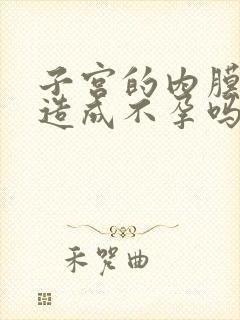 子宫的内膜
造成不孕吗
禾哭曲